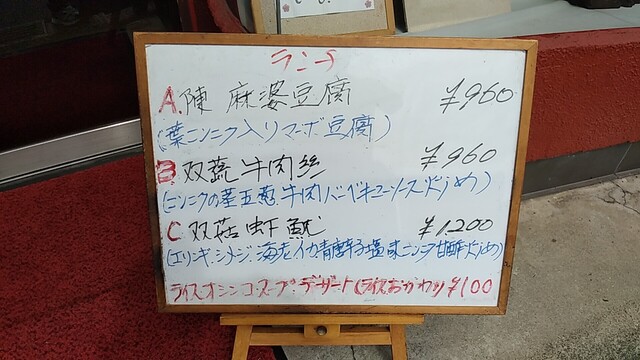 ランチ
A.陳 麻婆豆腐 ¥960
(葉ニンニク入りマーボ豆腐)
B 双蔬牛肉絲 ¥960
(ニンニクの茎玉葱、牛肉バーベキューソース炒め)
C.双菇虾魷 ¥1,200
(エリンギ・シメジ、海老イカ青唐辛子塩味ニンニク甘酢炒め)
ライス・オシンコ・スープ・デザート(ライスおかわり)¥100